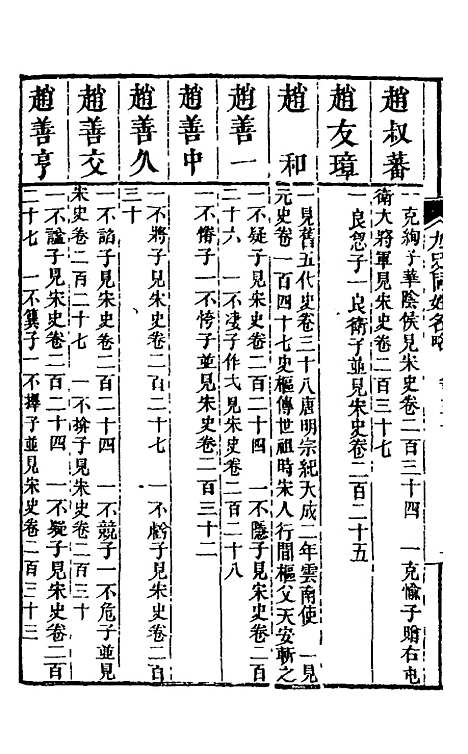 九史同姓名略
趙叔蕃
一克絢子華陰侯見宋史卷二百三十四　一克愉子贈右屯
衛大將軍見宋史卷二百三十七
趙友璋
一良恕子一良衛子並見宋史卷二百二十五
趙　和
一見舊五代史卷三十八唐明宗紀天成二年雲南使　一見
元史卷一百四十七史樞傳世祖時宋人行間樞父天安斬之
趙善一
一不疑子見宋史卷二百二十四　一不隱子見宋史卷二百
二十六　一不淒子作弌見宋史卷二百二十八
趙善中
一不㑺子　一不恃子並見宋史卷二百三十二
趙善久
一不將子見宋史卷二百二十七　一不黯子見宋史卷二百
三十
趙善交
一不諂子見宋史卷二百二十四　一不競子一不危子並見
宋史卷二百二十七　一不捨子見宋史卷二百三十
趙善亨
一不謐子見宋史卷二百二十四　一不疑子見宋史卷二百
二十七　一不簍子一不擇子並見宋史卷二百三十三